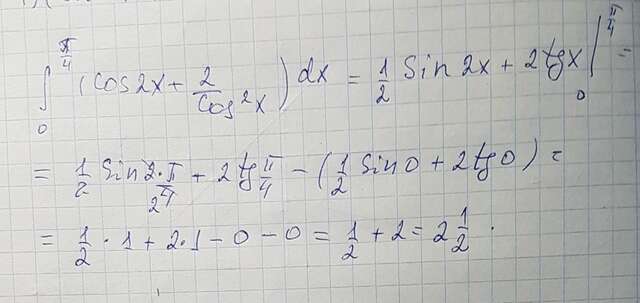 ∫₀^{π/4} (cos2x + 2/cos²x) dx = 1/2 Sin 2x + 2 tg x |₀^{π/4} =
= 1/2 Sin 2·π/4 + 2 tg π/4 − (1/2 Sin 0 + 2 tg 0) =
= 1/2 · 1 + 2·1 − 0 − 0 = 1/2 + 2 = 2 1/2 .